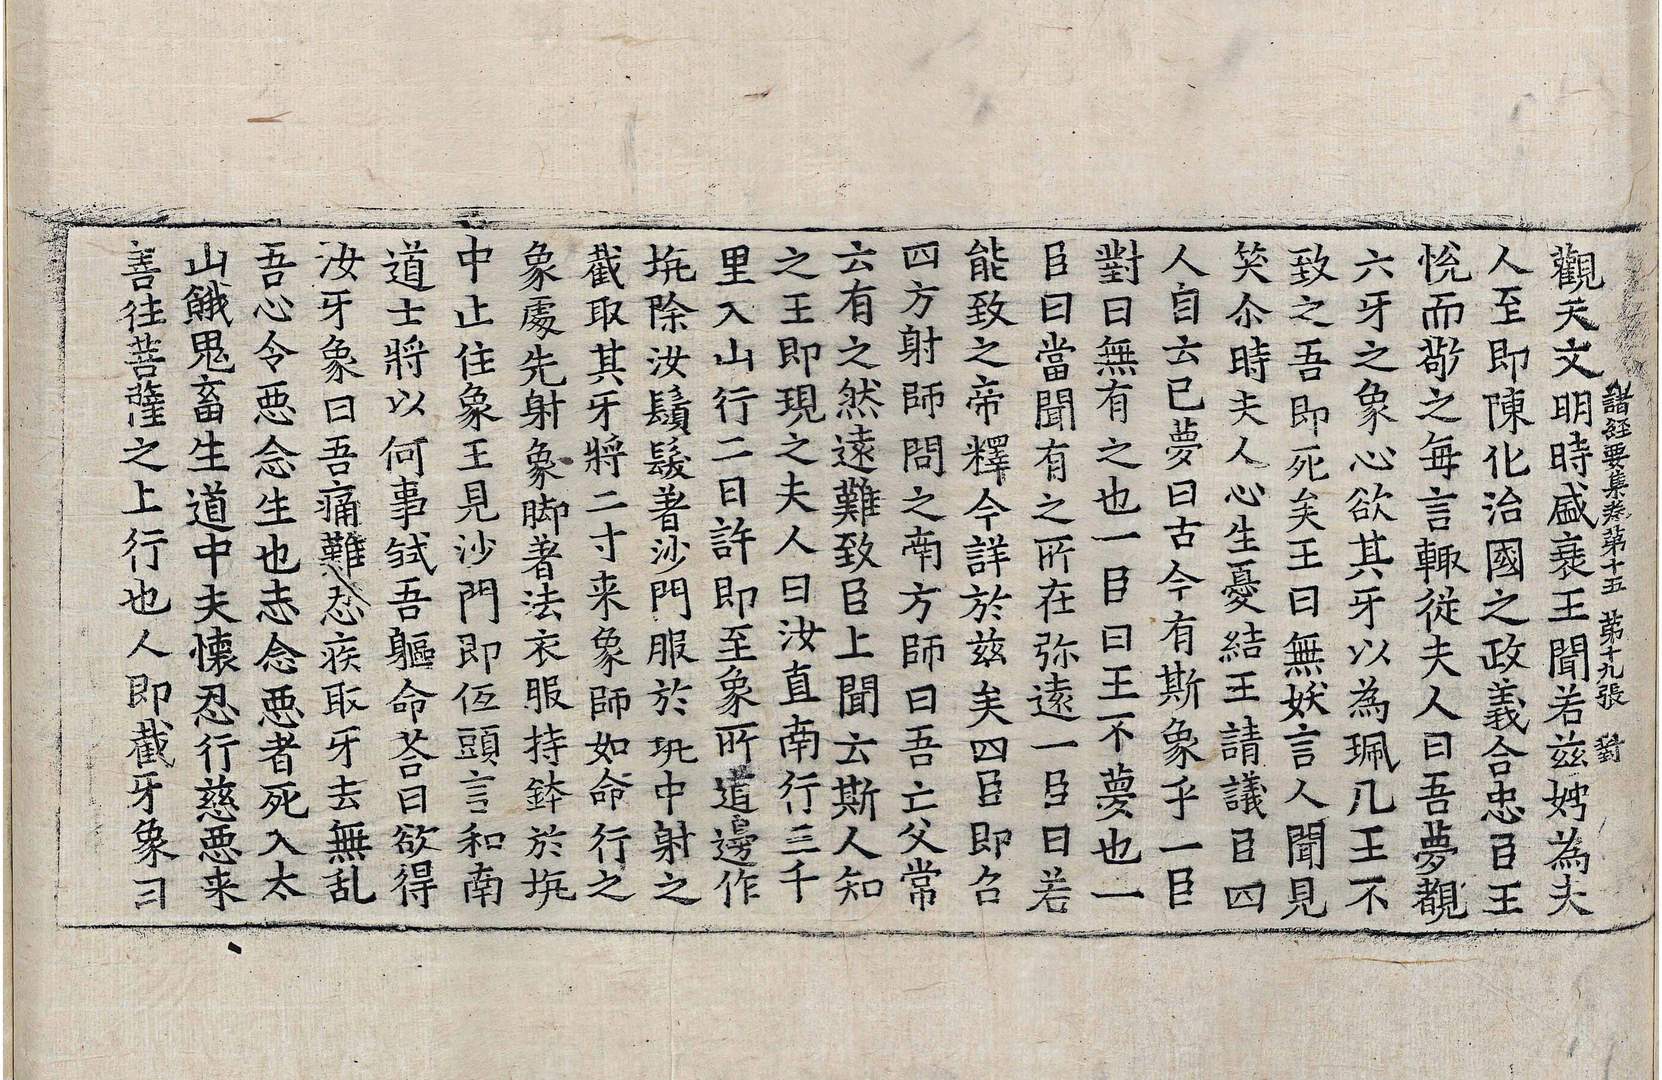 諸経要集卷第十五 第十九張 對
觀天文明時盛衰王聞若兹娉為夫
人至即陳化治國之政義合忠臣王
悅而敬之每言輙從夫人曰吾夢覩
六牙之象心欲其牙以為珮几王不
致之吾即死矣王曰無妖言人聞見
笑尒時夫人心生憂結王請議臣四
人自云已夢曰古今有斯象乎一臣
對曰無有之也一臣曰王不夢也一
臣曰當聞有之所在弥遠一臣曰若
能致之帝釋今詳於兹矣四臣即召
四方射師問之南方師曰吾亡父常
云有之然遠難致臣上聞云斯人知
之王即現之夫人曰汝直南行三千
里入山行二日許即至象所道邊作
坑除汝鬚髮著沙門服於坑中射之
截取其牙將二寸来象師如命行之
象處先射象脚著法衣服持鉢於坑
中止住象王見沙門即伍頭言和南
道士將以何事試吾軀命荅曰欲得
汝牙象曰吾痛難忍疾取牙去無乱
吾心令悪念生也志念悪者死入太
山餓鬼畜生道中夫懷忍行慈悪来
善往菩薩之上行也人即截牙象曰